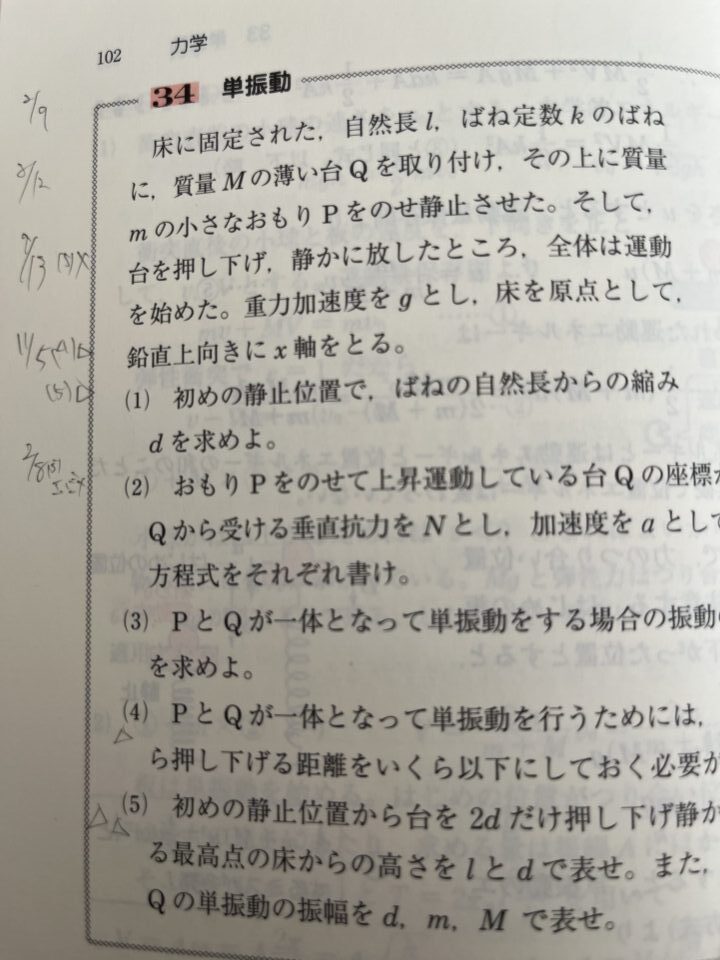 102 力学
34 単振動
床に固定された，自然長 l，ばね定数 k のばね
に，質量 M の薄い台 Q を取り付け，その上に質量
m の小さなおもり P をのせ静止させた。そして，
台を押し下げ，静かに放したところ，全体は運動
を始めた。重力加速度を g とし，床を原点として，
鉛直上向きに x 軸をとる。
(1) 初めの静止位置で，ばねの自然長からの縮み
d を求めよ。
(2) おもり P をのせて上昇運動している台 Q の座標が
Q から受ける垂直抗力を N とし，加速度を a として
方程式をそれぞれ書け。
(3) P と Q が一体となって単振動をする場合の振動の
を求めよ。
(4) P と Q が一体となって単振動を行うためには，
ら押し下げる距離をいくら以下にしておく必要が
(5) 初めの静止位置から台を 2d だけ押し下げ静か
る最高点の床からの高さを l と d で表せ。また，
Q の単振動の振幅を d，m，M で表せ。
2/9
2/12
9/13 (3)×
11/5 (4)△
(5)△